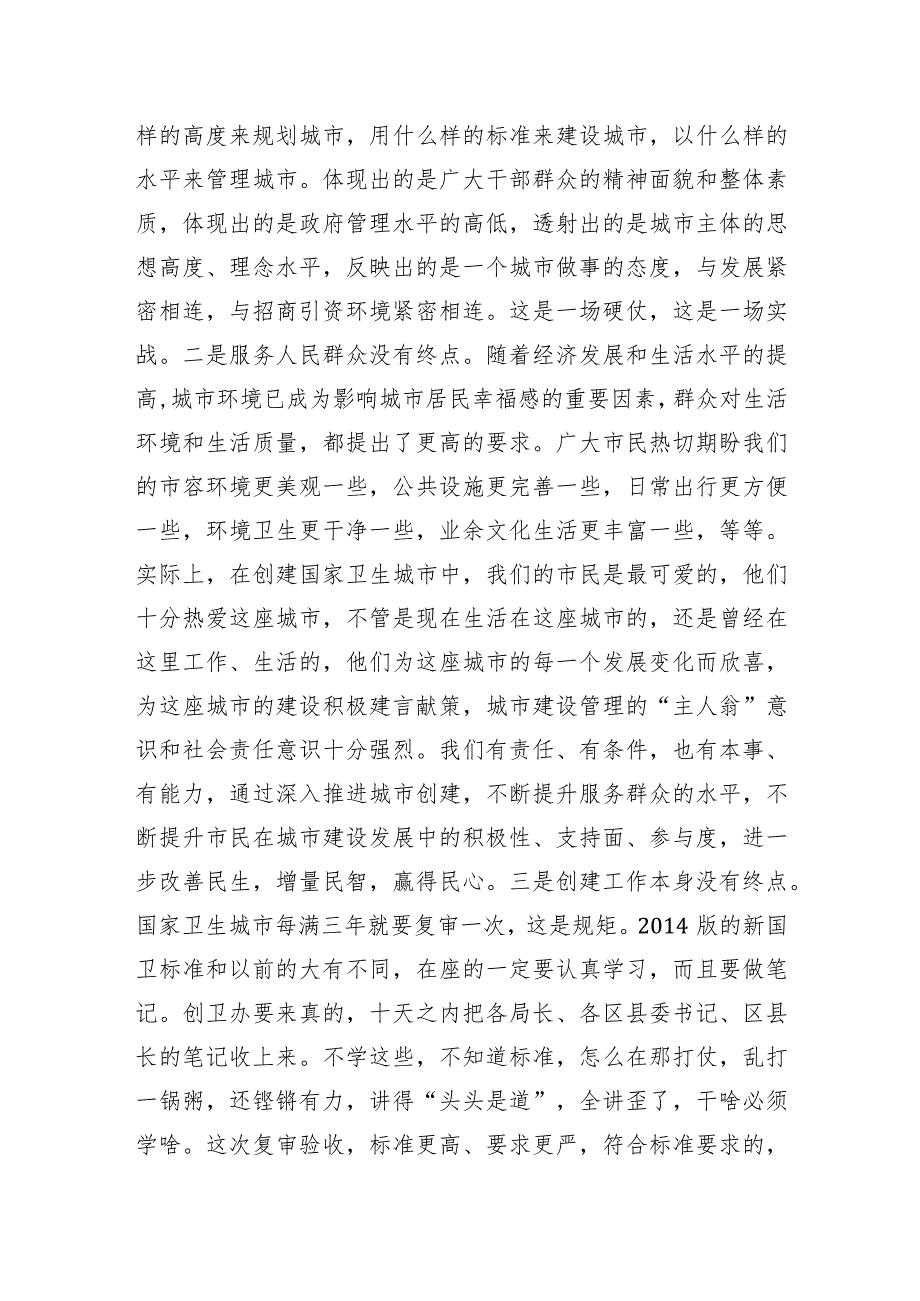 样的高度来规划城市，用什么样的标准来建设城市，以什么样的
水平来管理城市。体现出的是广大干部群众的精神面貌和整体素
质，体现出的是政府管理水平的高低，透射出的是城市主体的思
想高度、理念水平，反映出的是一个城市做事的态度，与发展紧
密相连，与招商引资环境紧密相连。这是一场硬仗，这是一场实
战。二是服务人民群众没有终点。随着经济发展和生活水平的提
高,城市环境已成为影响城市居民幸福感的重要因素，群众对生活
环境和生活质量，都提出了更高的要求。广大市民热切期盼我们
的市容环境更美观一些，公共设施更完善一些，日常出行更方便
一些，环境卫生更干净一些，业余文化生活更丰富一些，等等。
实际上，在创建国家卫生城市中，我们的市民是最可爱的，他们
十分热爱这座城市，不管是现在生活在这座城市的，还是曾经在
这里工作、生活的，他们为这座城市的每一个发展变化而欣喜，
为这座城市的建设积极建言献策，城市建设管理的“主人翁”意
识和社会责任意识十分强烈。我们有责任、有条件，也有本事、
有能力，通过深入推进城市创建，不断提升服务群众的水平，不
断提升市民在城市建设发展中的积极性、支持面、参与度，进一
步改善民生，增量民智，赢得民心。三是创建工作本身没有终点。
国家卫生城市每满三年就要复审一次，这是规矩。2014版的新国
卫标准和以前的大有不同，在座的一定要认真学习，而且要做笔
记。创卫办要来真的，十天之内把各局长、各区县委书记、区县
长的笔记收上来。不学这些，不知道标准，怎么在那打仗，乱打
一锅粥，还铿锵有力，讲得“头头是道”，全讲歪了，干啥必须
学啥。这次复审验收，标准更高、要求更严，符合标准要求的，